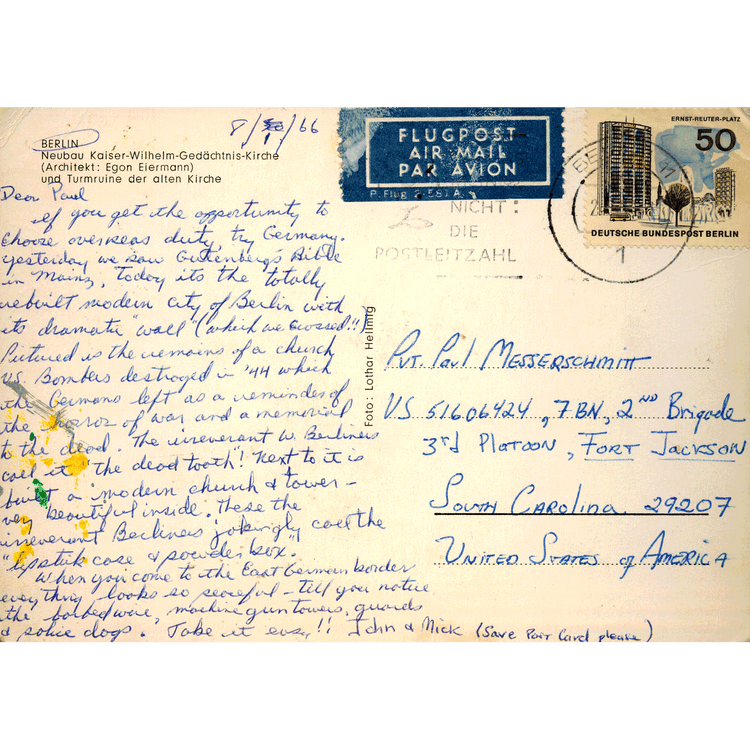 8/30/66
BERLIN
Neubau Kaiser-Wilhelm-Gedächtnis-Kirche
(Architekt: Egon Eiermann)
und Turmruine der alten Kirche
Dear Paul
If you get the opportunity to
choose overseas duty, try Germany.
yesterday we saw Gutenberg's Bible
in Mainz, today its the totally
rebuilt modern city of Berlin with
its dramatic "wall" (which we crossed!!)
Pictured is the remains of a church
U.S. Bombers destroyed in '44 which
the Germans left as a reminder of
the horror of war and a memorial
to the dead. The irreverant W. Berliners
call it "the dead tooth"! Next to it is
built a modern church & tower -
very beautiful inside. These the
irreverant Berliners jokingly call the
"lipstick case & powder box."
When you come to the East German border
everything looks so peaceful - till you notice
the barbed wire, machine gun towers, guards
& police dogs. Take it easy!! John & Nick (Save Post Card please)
Foto: Lothar Hellmig
FLUGPOST
AIR MAIL
PAR AVION
NICHT:
DIE
POSTLEITZAHL
1
ERNST-REUTER-PLATZ
50
DEUTSCHE BUNDESPOST BERLIN
Pvt. Paul Messerschmitt
US 51606424, 7BN, 2ND Brigade
3rd Platoon, Fort Jackson
South Carolina 29207
United States of America